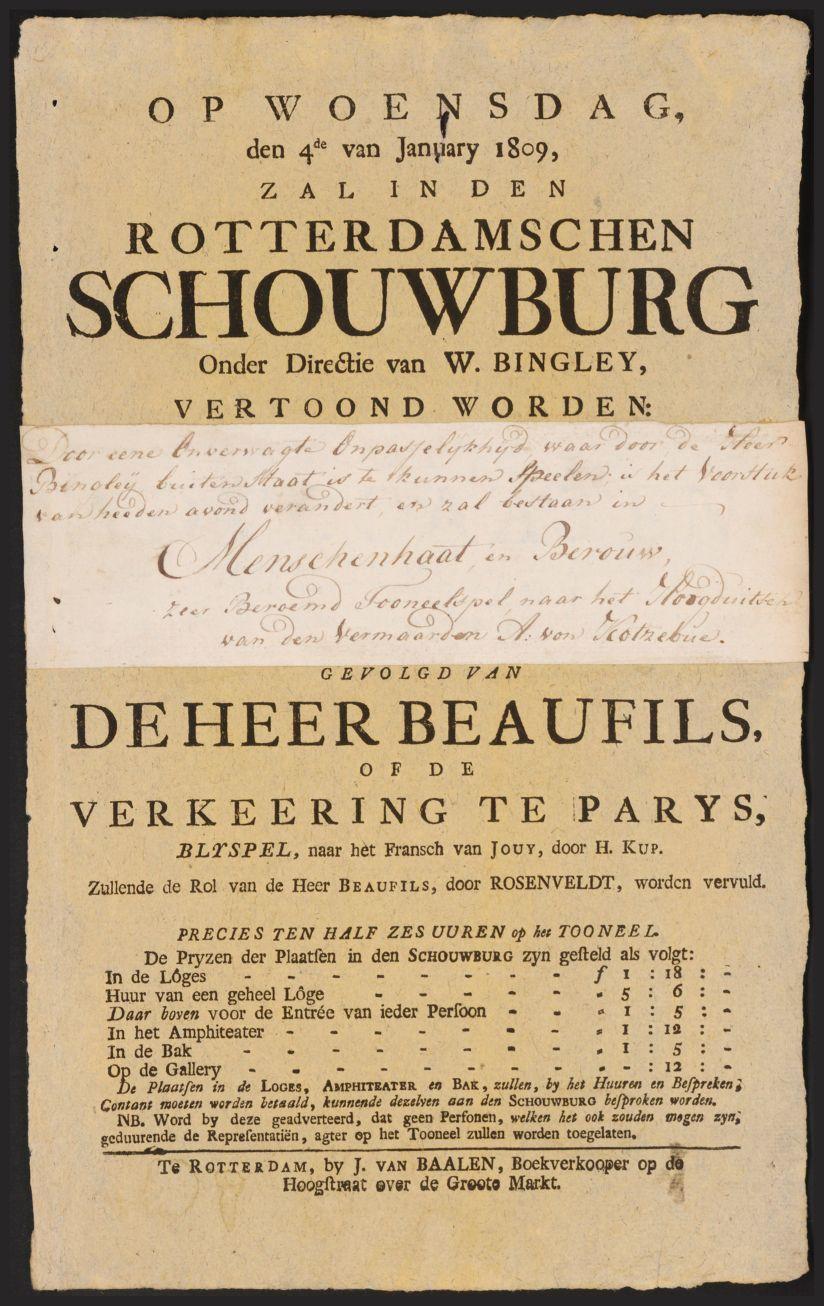 OP WOENSDAG,
den 4de van January 1809,
ZAL IN DEN
ROTTERDAMSCHEN
SCHOUWBURG
Onder Directie van W. BINGLEY,
VERTOOND WORDEN:
Door eene Onverwagte Onpasselykhyd, waar door de Heer
Bingleÿ buiten Staat is te kunnen Speelen; is het Voorstuk
van heeden avond verandert, en zal bestaan in
Menschenhaat, en Berouw,
zeer Beroemd Tooneelspel, naar het Hoogduitsch
van den Vermaarden A: von Kotzebue.
GEVOLGD VAN
DE HEER BEAUFILS,
OF DE
VERKEERING TE PARYS,
BLYSPEL, naar het Fransch van JOUY, door H. KUP.
Zullende de Rol van de Heer BEAUFILS, door ROSENVELDT, worden vervuld.
PRECIES TEN HALF ZES UUREN op het TOONEEL.
De Pryzen der Plaatſen in den SCHOUWBURG zyn geſteld als volgt:
In de Lôges - - - - - - - - - f 1 : 18 : -
Huur van een geheel Lôge - - - - - " 5 : 6 : -
Daar boven voor de Entrée van ieder Perſoon - - " 1 : 5 : -
In het Amphiteater - - - - - - - " 1 : 12 : -
In de Bak - - - - - - - - - " 1 : 5 : -
Op de Gallery - - - - - - - - " - : 12 : -
De Plaatſen in de LOGES, AMPHITEATER en BAK, zullen, by het Huuren en Beſpreken;
Contant moeten worden betaald, kunnende dezelven aan den SCHOUWBURG beſproken worden.
NB. Word by deze geadverteerd, dat geen Perſonen, welken het ook zouden mogen zyn,
geduurende de Repreſentatiën, agter op het Tooneel zullen worden toegelaten.
Te ROTTERDAM, by J. VAN BAALEN, Boekverkooper op de
Hoogſtraat over de Groote Markt.